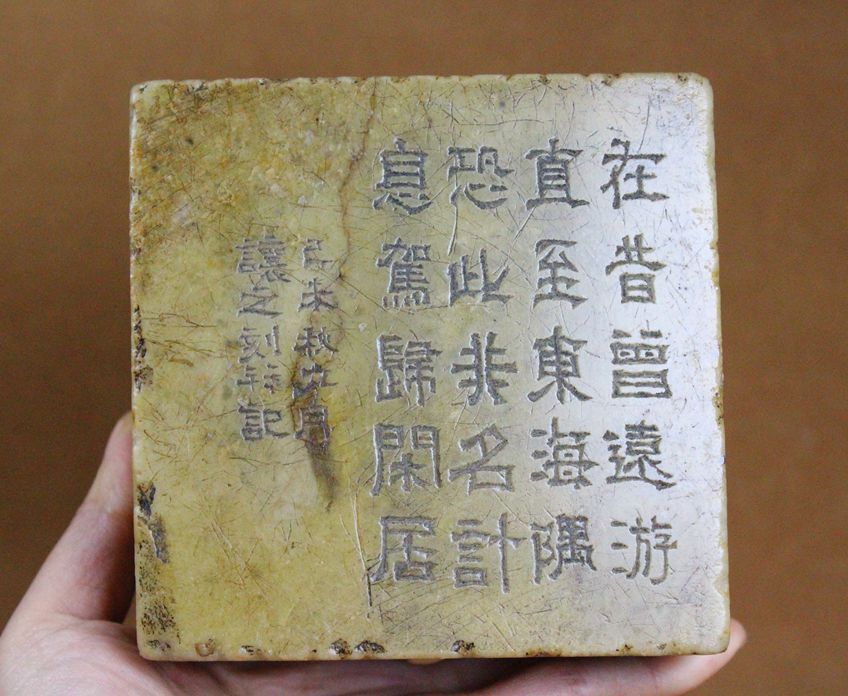 在昔曾遠游
直至東海隅
恐此非名計
息駕歸閑居
未秋月
讓之刻記